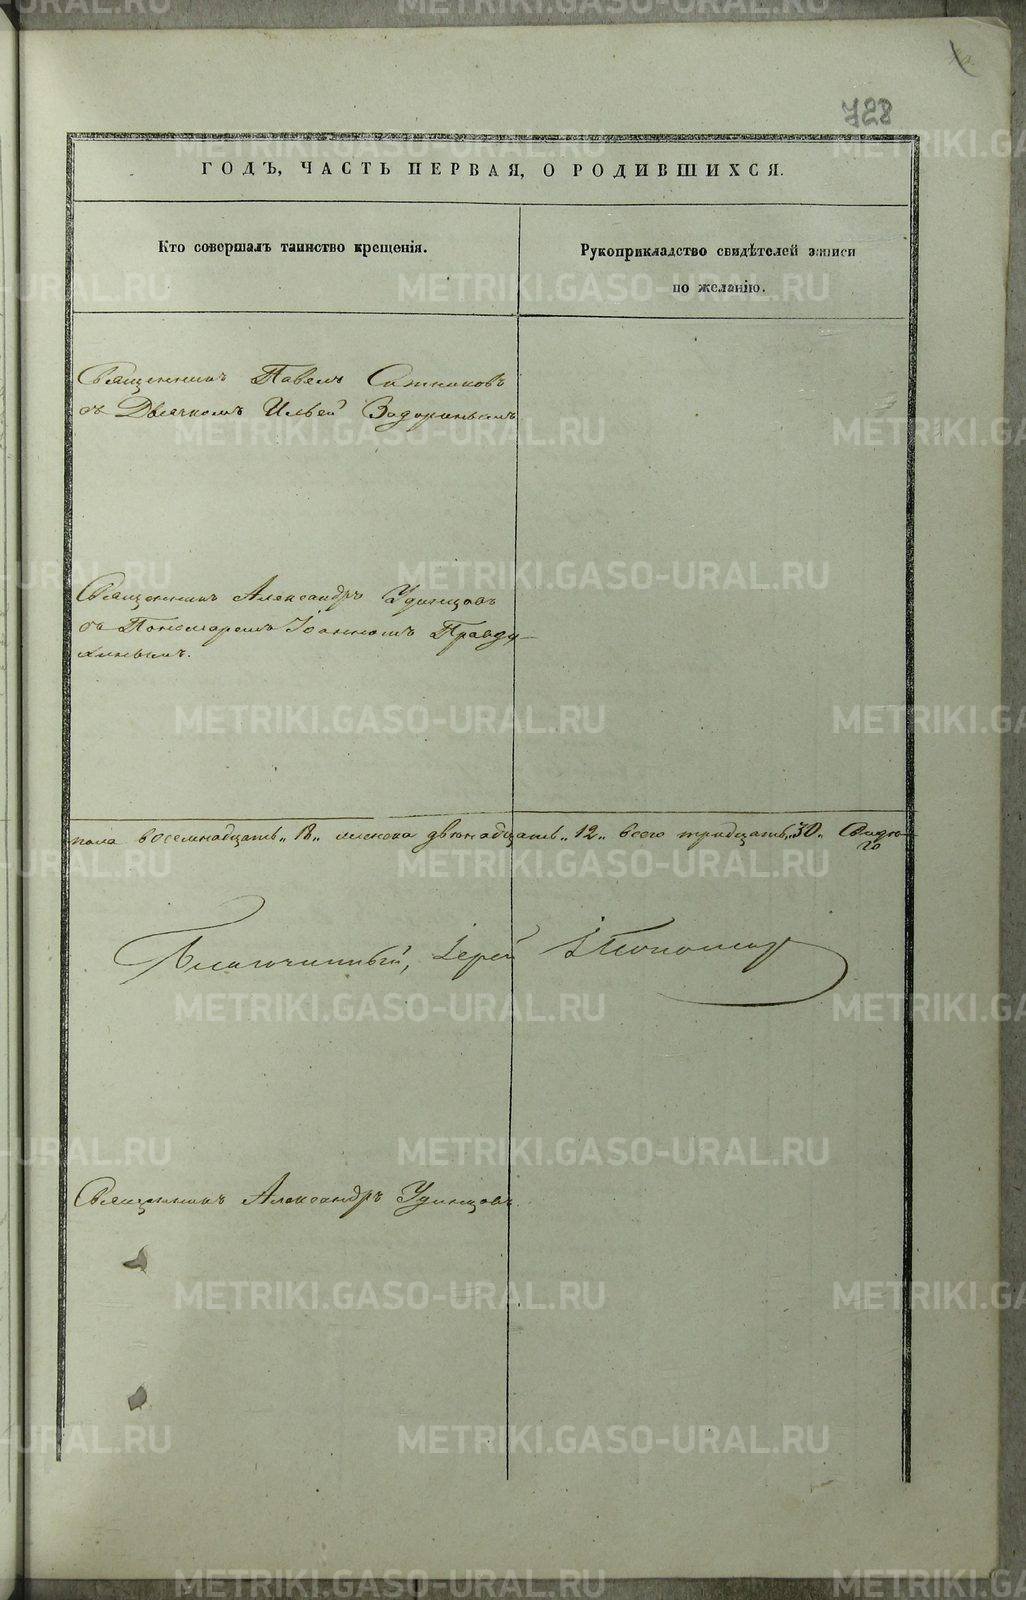 728
ГОДЪ, ЧАСТЬ ПЕРВАЯ, О РОДИВШИХСЯ.
Кто совершалъ таинство крещенія.
Рукоприкладство свидѣтелей записи
по желанію.
Священникъ Павелъ Сотниковъ
съ Дьячкомъ Ильей Задоринымъ
Священникъ Александръ Удинцовъ
съ Пономаремъ Іоанномъ Правду-
хинымъ.
пола восемнадцать „18„ женска двенадцать „12„ всего тридцать „30„
Благочинный, Іерей
Священникъ Александръ Удинцовъ
METRIKI.GASO-URAL.RU